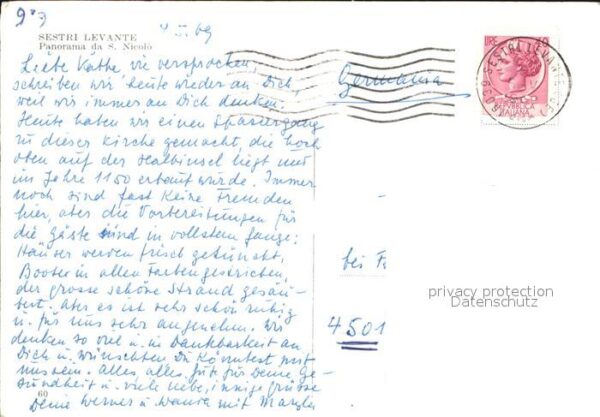 SESTRI LEVANTE
Panorama da S. Nicolò
Liebe Käthe, wie versprochen,
schreiben wir heute wieder an Dich,
weil wir immer an Dich denken.
Heute haben wir einen Spaziergang
zu dieser Kirche gemacht, die hoch
oben auf der Halbinsel liegt und
im Jahre 1150 erbaut wurde. Immer
noch sind fast keine Fremden
hier, aber die Vorbereitungen für
die Gäste sind in vollstem Gange:
Häuser werden frisch getüncht,
Boote in allen Farben gestrichen,
der grosse schöne Strand gesäu-
bert. Aber es ist sehr schön ruhig
u. für uns sehr angenehm. Wir
denken so viel u. in Dankbarkeit an
Dich u. wünschten Du könntest mit
uns sein. Alles, alles Gute für Deine Ge-
sundheit u. viele liebe, innige Grüsse
Deine Werner u. Wanda mit
60
Germania
ITALIANA
SESTRI LEVANTE
bei F
4501
privacy protection
Datenschutz